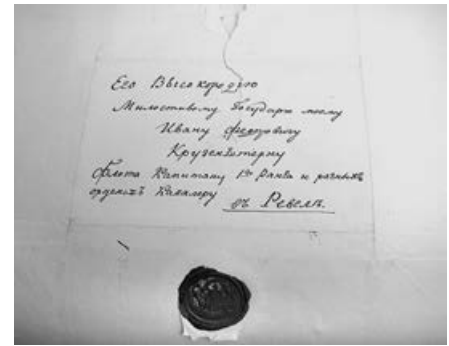 Его Высокородію
Милостивому Государю моему
Ивану Федоровичу
Крузенштерну
Флота Капитану 1го Ранга и разныхъ
орденовъ Кавалеру
въ Ревелѣ.